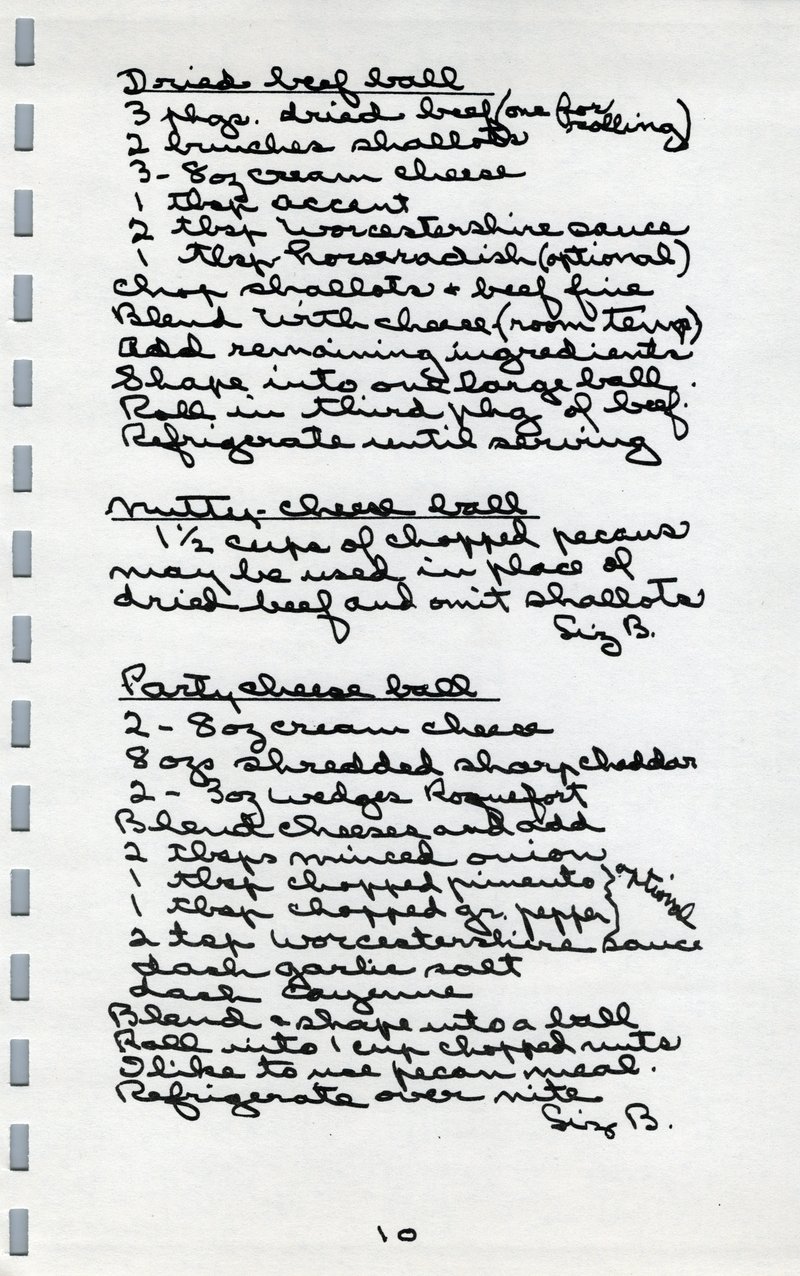 Dried beef ball
3 pkgs. dried beef (one for rolling)
2 bunches shallots
3 - 8oz cream cheese
1 tbsp accent
2 tbsp Worcestershire sauce
1 tbsp horseradish (optional)
Chop shallots + beef fine
Blend with cheese (room temp)
Add remaining ingredients
Shape into one large ball.
Roll in third pkg of beef.
Refrigerate until serving
Nutty-cheese ball
1 1/2 cups of chopped pecans
may be used in place of
dried beef and omit shallots
Liz B.
Party cheese ball
2 - 8oz cream cheese
8 ozs shredded sharp cheddar
2 - 3oz wedges Roquefort
Blend cheeses and add
2 tbsps minced onion
1 tbsp chopped pimento } optional
1 tbsp chopped gr. pepper
2 tsp Worcestershire sauce
dash garlic salt
dash Cayenne
Blend & shape into a ball
Roll into 1 cup chopped nuts
I like to use pecan meal.
Refrigerate over nite
Liz B.
10